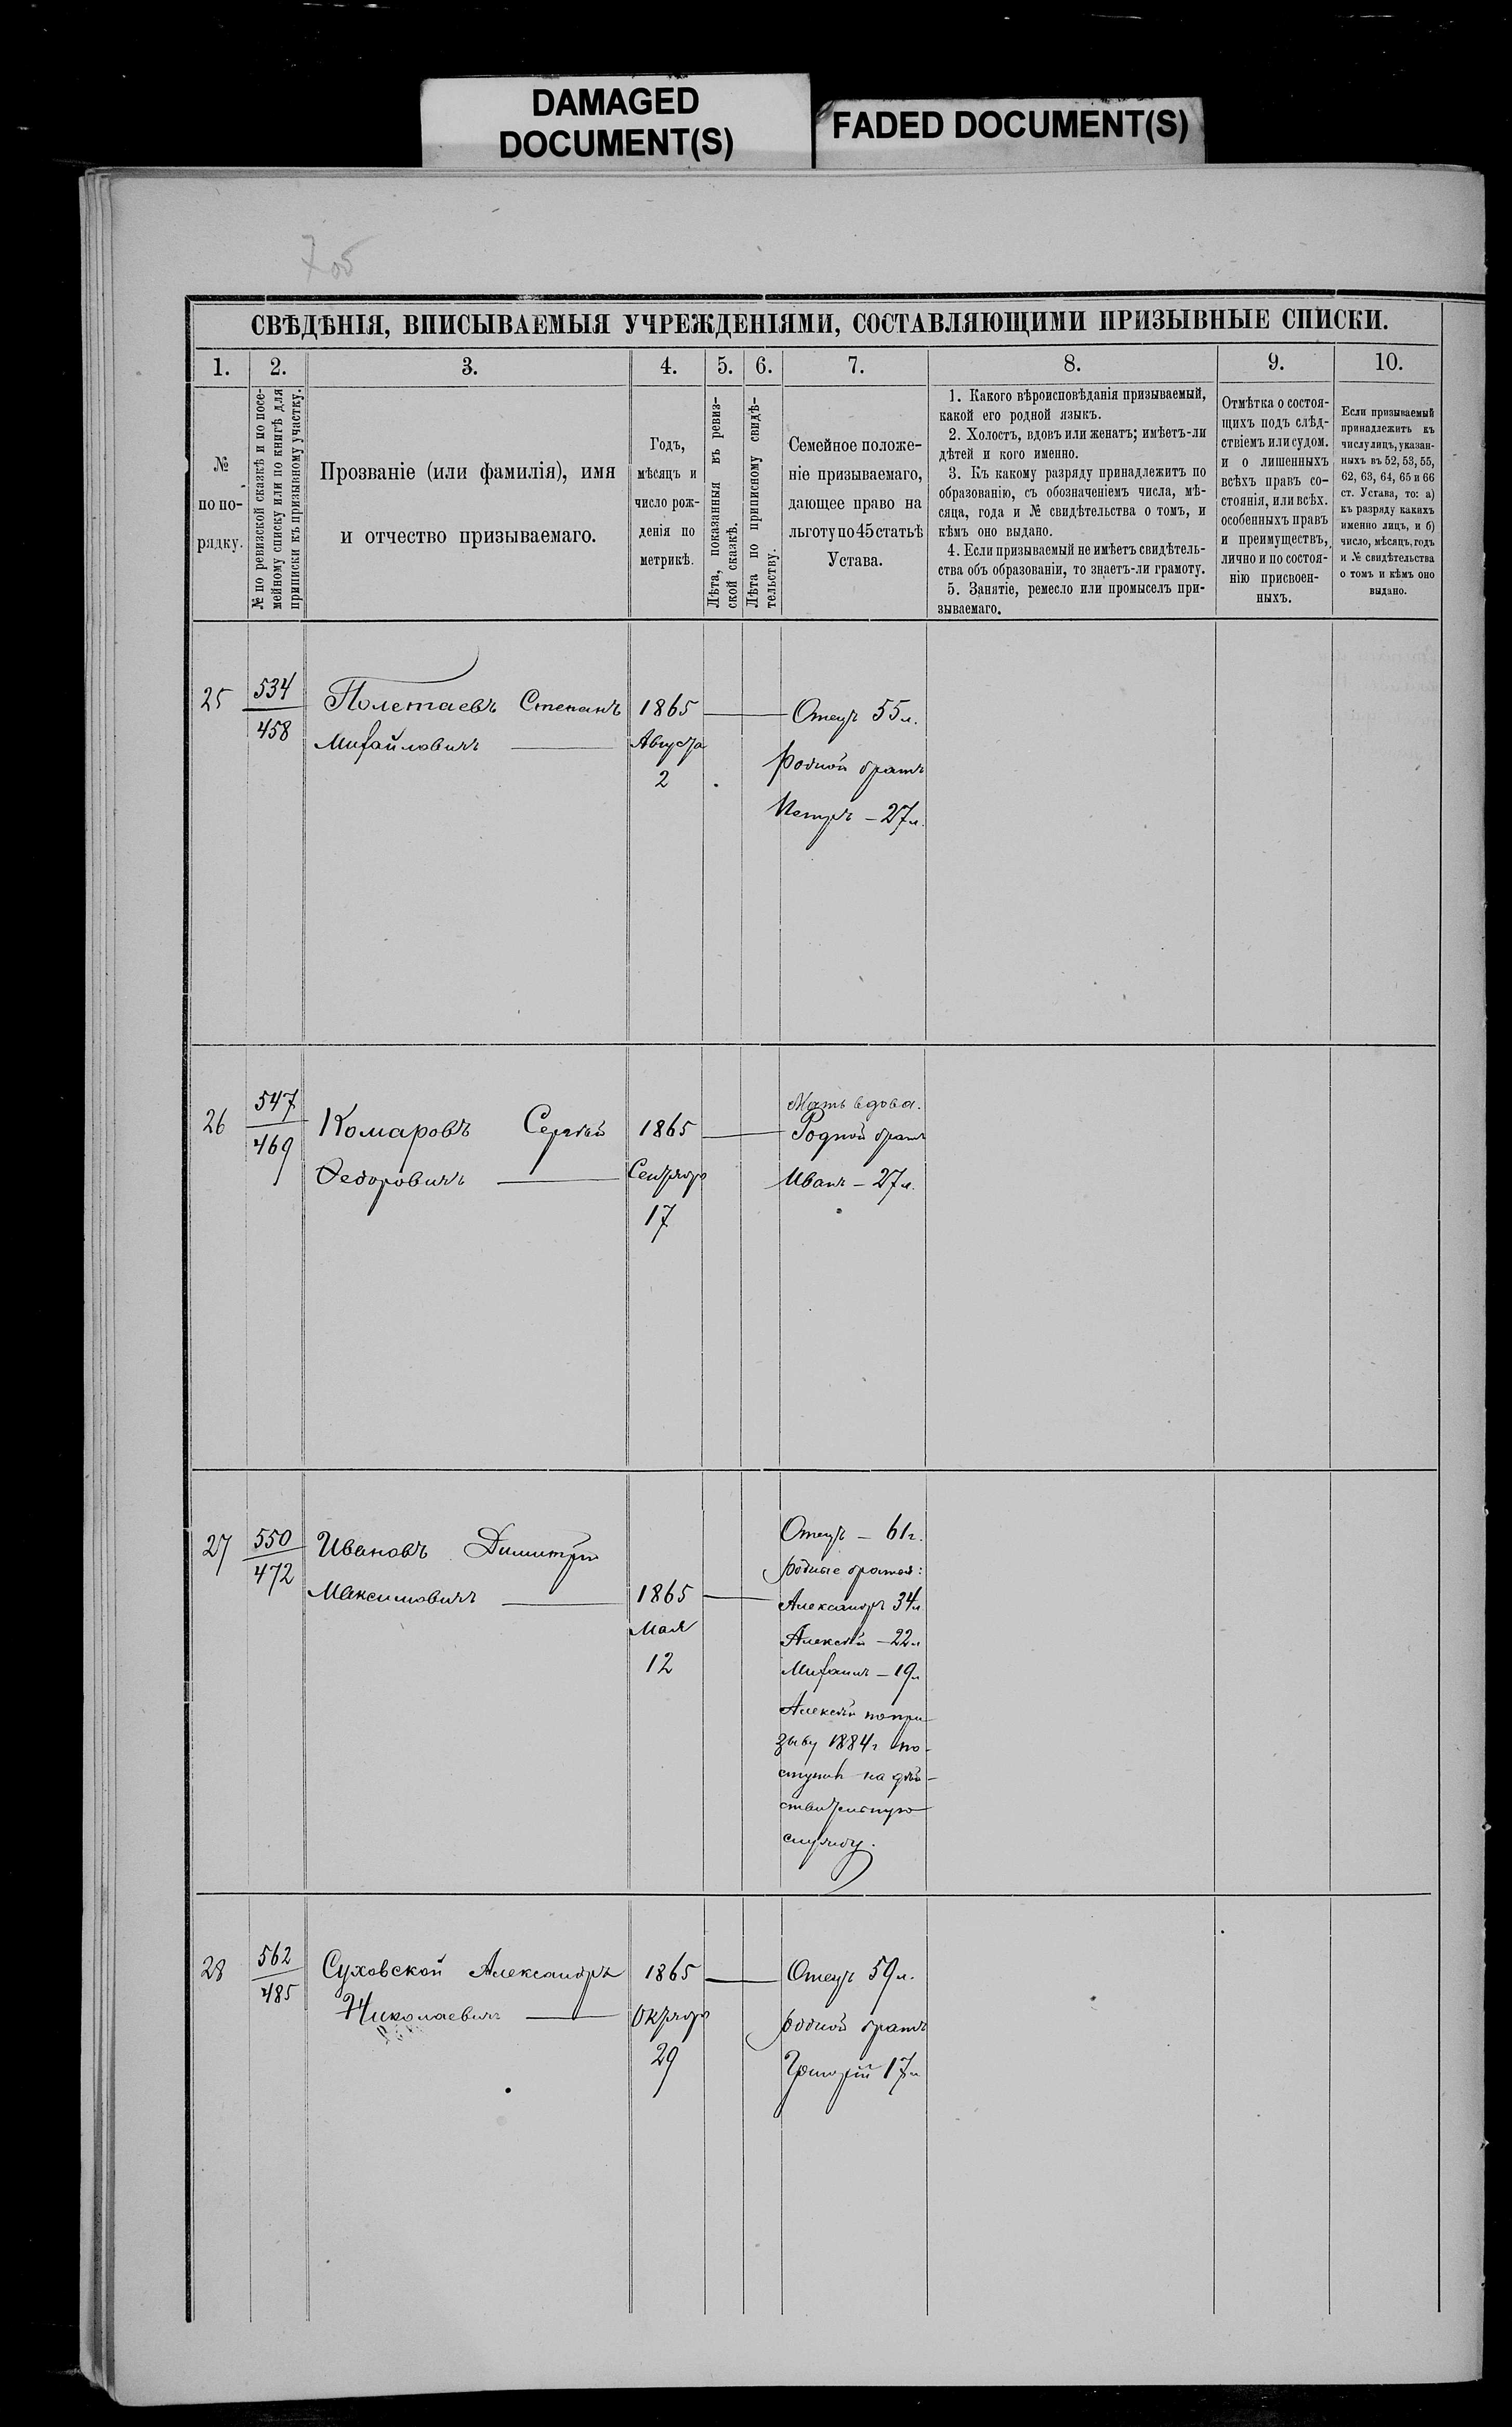 DAMAGED
DOCUMENT(S)
FADED DOCUMENT(S)
705
СВѢДѢНІЯ, ВПИСЫВАЕМЫЯ УЧРЕЖДЕНІЯМИ, СОСТАВЛЯЮЩИМИ ПРИЗЫВНЫЕ СПИСКИ.
1.
2.
3.
4.
5.
6.
7.
8.
9.
10.
№
по по-
рядку.
№ по ревизской сказкѣ и по посе-
мейному списку или по книгѣ для
приписки къ призывному участку.
Прозваніе (или фамилія), имя
и отчество призываемаго.
Годъ,
мѣсяцъ и
число рож-
денія по
метрикѣ.
Лѣта, показанныя въ ревиз-
ской сказкѣ.
Лѣта по приписному свидѣ-
тельству.
Семейное положе-
ніе призываемаго,
дающее право на
льготу по 45 статьѣ
Устава.
1. Какого вѣроисповѣданія призываемый,
какой его родной языкъ.
2. Холостъ, вдовъ или женатъ; имѣетъ-ли
дѣтей и кого именно.
3. Къ какому разряду принадлежитъ по
образованію, съ обозначеніемъ числа, мѣ-
сяца, года и № свидѣтельства о томъ, и
кѣмъ оно выдано.
4. Если призываемый не имѣетъ свидѣтель-
ства объ образованіи, то знаетъ-ли грамоту.
5. Занятіе, ремесло или промыселъ при-
зываемаго.
Отмѣтка о состоя-
щихъ подъ слѣд-
ствіемъ или судом.
и о лишенныхъ
всѣхъ правъ со-
стоянія, или всѣх.
особенныхъ правъ
и преимуществъ,
лично и по состоя-
нію присвоен-
ныхъ.
Если призываемый
принадлежитъ къ
числу лицъ, указан-
ныхъ въ 52, 53, 55,
62, 63, 64, 65 и 66
ст. Устава, то: а)
къ разряду какихъ
именно лицъ, и б)
число, мѣсяцъ, годъ
и № свидѣтельства
о томъ и кѣмъ оно
выдано.
25
534
458
Полетаевъ Степанъ
Михайловичъ
1865
Августа
2
Отецъ 55 л.
родной братъ
Петръ – 27 л.
26
547
469
Комаровъ Сергѣй
Федоровичъ
1865
Сентября
17
Мать вдова.
Родной братъ
Иванъ – 27 л.
27
550
472
Ивановъ Димитрій
Максимовичъ
1865
Мая
12
Отецъ – 61 г.
родные братья:
Александръ 34 л
Алексѣй – 22 л
Михаилъ – 19 л
Алексѣй по при
зыву 1884 г по-
ступилъ на дѣй-
ствительную
службу.
28
562
485
Суховской Александръ
Николаевичъ
1865
Октября
29
Отецъ 59 л.
родной братъ
Григорій 17 л